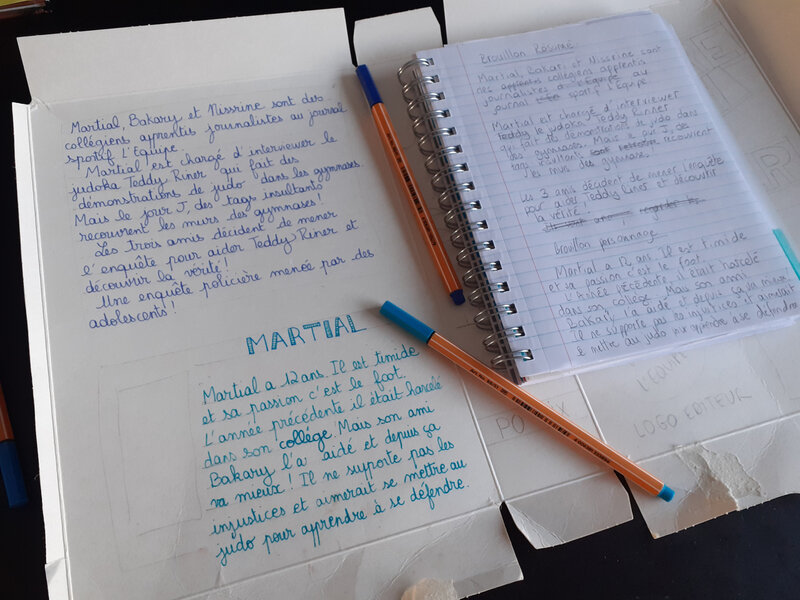 Martial, Bakary et Nissrine sont des
collégiens apprentis journalistes au journal
sportif L'Equipe.
Martial est chargé d'interviewer le
judoka Teddy Riner qui fait des
démonstrations de judo dans les gymnases.
Mais le jour J, des tags insultants
recouvrent les murs des gymnases!
Les trois amis décident de mener
l'enquête pour aider Teddy Riner et
découvrir la vérité!
Une enquête policière menée par des
adolescents!
MARTIAL
Martial a 12 ans. Il est timide
et sa passion c'est le foot.
L'année précédente il était harcelé
dans son collége. Mais son ami
Bakary l'a aidé et depuis ça
va mieux! Il ne supporte pas les
injustices et aimerait se mettre au
judo pour apprendre à se défendre.
Brouillon Résumé
Martial, Bakari et Nissrine sont
des apprentis collégiens apprentis
journalistes au
journal sportif L'Equipe
Martial est chargé d'interviewer
teddy le judoka Teddy Riner
qui fait des démonstrations de judo dans
des gymnases. Mais le jour J, des
tags insultants recouvrent
les murs des gymnases.
Les 3 amis décident de mener l'enquête
pour aider Teddy Riner et découvrir
la vérité.
Brouillon personnage
Martial a 12 ans. Il est timide
et sa passion c'est le foot.
L'année précédente, il était harcelé
dans son collège. Mais son ami
Bakary l'a aidé et depuis ça va mieux
Il ne supporte pas les injustices et aimerait
se mettre au judo pour apprendre à se défendre
L'EQUIPE
LOGO EDITEUR